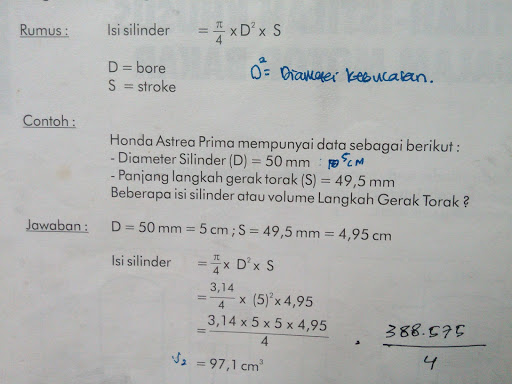 Rumus : Isi silinder = π/4 x D² x S
D = bore
S = stroke
D² = Diameter
Contoh :
Honda Astrea Prima mempunyai data sebagai berikut :
- Diameter Silinder (D) = 50 mm : 5 CM
- Panjang langkah gerak torak (S) = 49,5 mm
Beberapa isi silinder atau volume Langkah Gerak Torak ?
Jawaban : D = 50 mm = 5 cm ; S = 49,5 mm = 4,95 cm
Isi silinder = π/4 x D² x S
= 3,14/4 x (5)² x 4,95
= 3,14 x 5 x 5 x 4,95 / 4 . 388.575 / 4
= 97,1 cm³